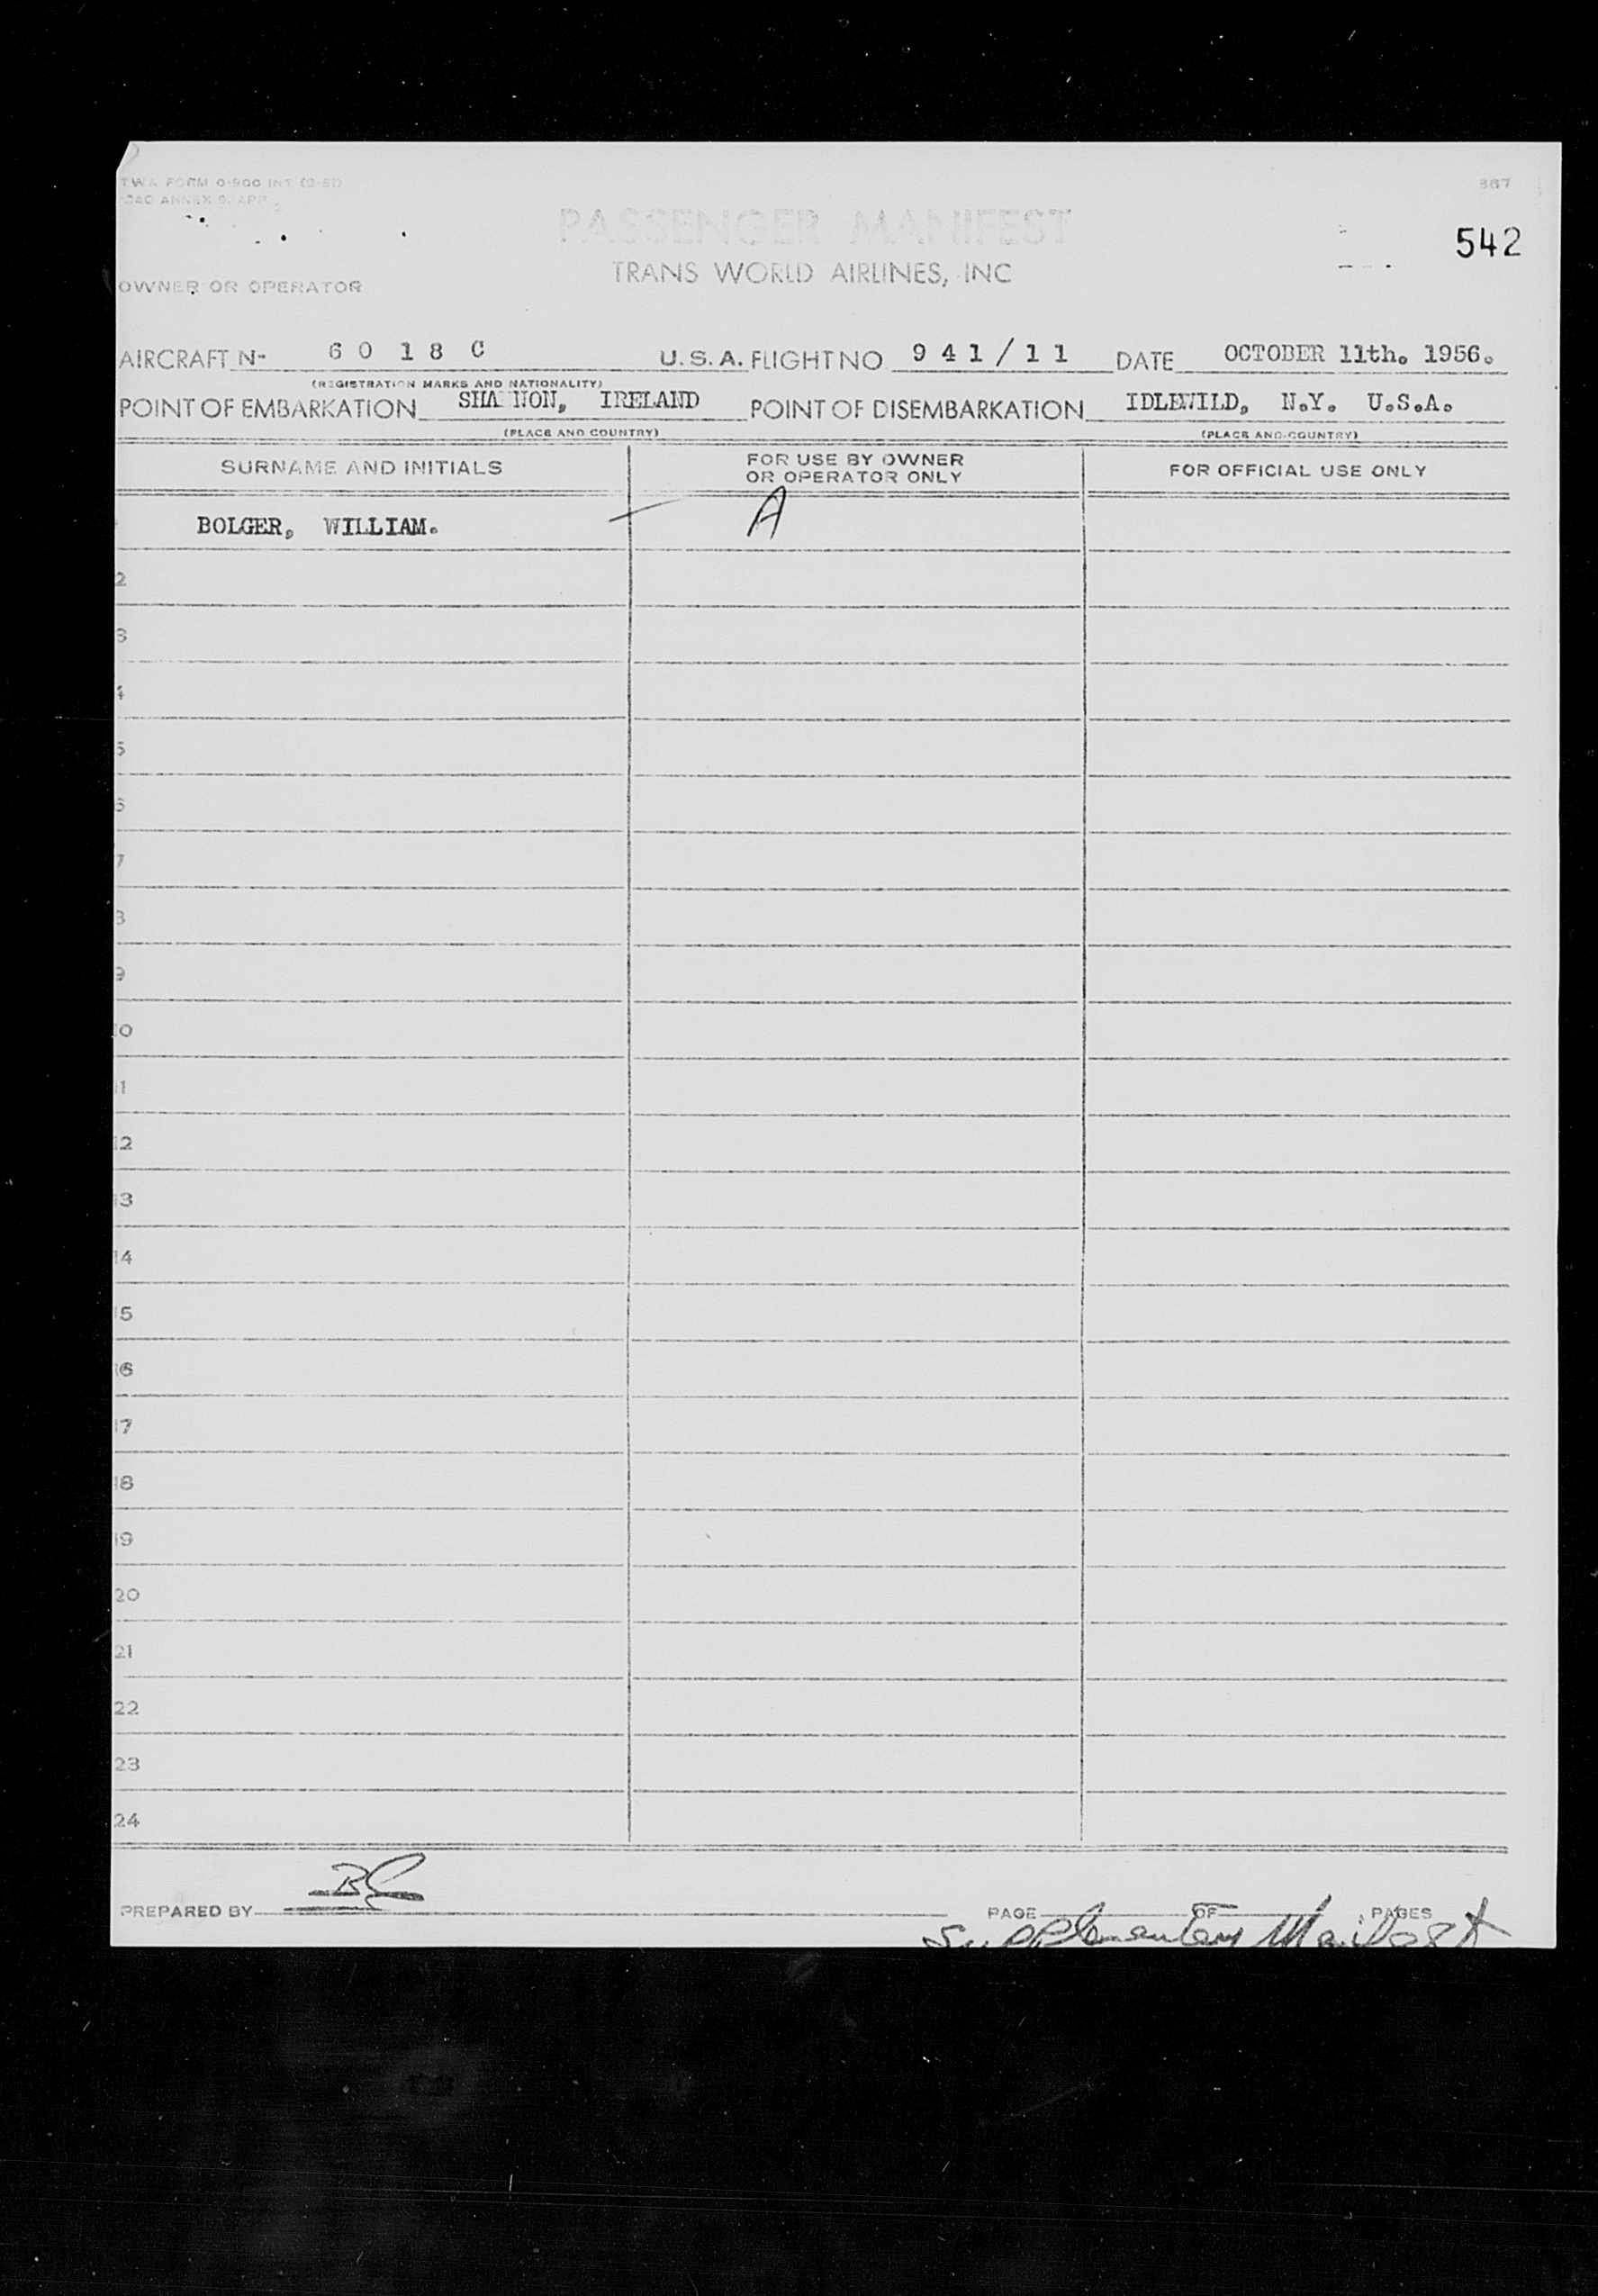 TWA FORM 0-900 INT (3-51) 867
ICAO ANNEX 9, APP.
542
PASSENGER MANIFEST
TRANS WORLD AIRLINES, INC
OWNER OR OPERATOR
AIRCRAFT N- 6 0 1 8 C U.S.A. FLIGHT NO 9 4 1 / 1 1 DATE OCTOBER 11th. 1956.
(REGISTRATION MARKS AND NATIONALITY)
POINT OF EMBARKATION SHA NON, IRELAND POINT OF DISEMBARKATION IDLEWILD, N.Y. U.S.A.
(PLACE AND COUNTRY) (PLACE AND COUNTRY)
SURNAME AND INITIALS FOR USE BY OWNER OR OPERATOR ONLY FOR OFFICIAL USE ONLY
BOLGER, WILLIAM. A
2
3
4
5
6
7
8
9
10
11
12
13
14
15
16
17
18
19
20
21
22
23
24
PREPARED BY PAGE OF PAGES
Supplementary Manifest